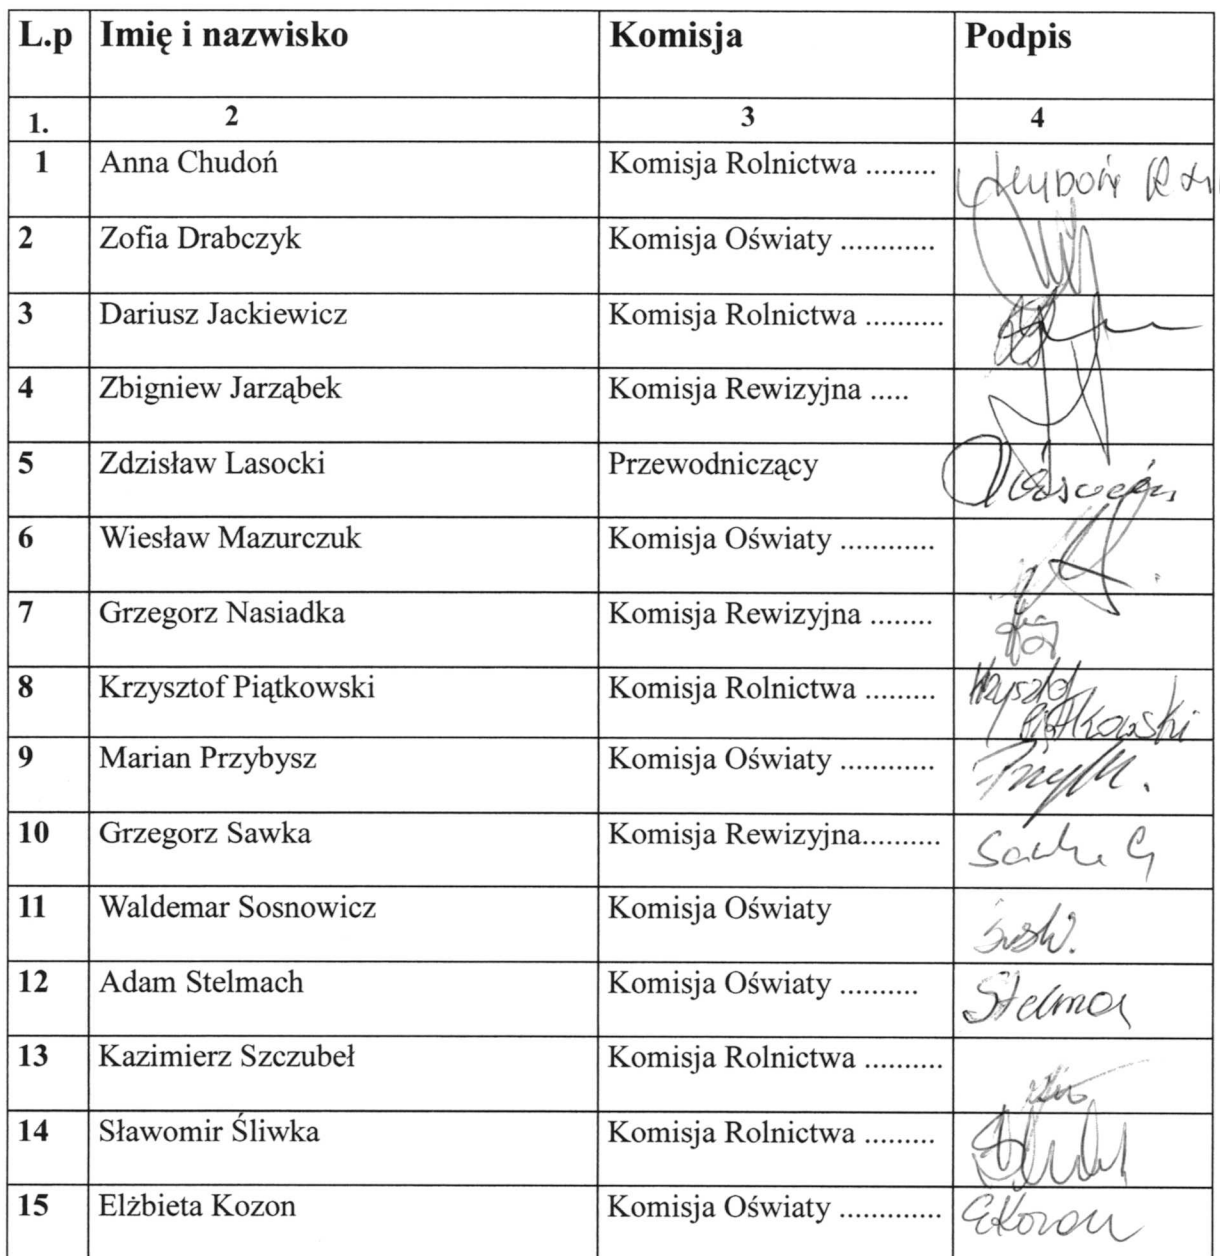 L.p Imię i nazwisko Komisja Podpis
1. 2 3 4
1 Anna Chudoń Komisja Rolnictwa .........
2 Zofia Drabczyk Komisja Oświaty ............
3 Dariusz Jackiewicz Komisja Rolnictwa ..........
4 Zbigniew Jarząbek Komisja Rewizyjna .....
5 Zdzisław Lasocki Przewodniczący
6 Wiesław Mazurczuk Komisja Oświaty ............
7 Grzegorz Nasiadka Komisja Rewizyjna ........
8 Krzysztof Piątkowski Komisja Rolnictwa ......... Krzysztof
Piątkowski
9 Marian Przybysz Komisja Oświaty ............
10 Grzegorz Sawka Komisja Rewizyjna.......... Sawka G
11 Waldemar Sosnowicz Komisja Oświaty
12 Adam Stelmach Komisja Oświaty .......... Stelmach
13 Kazimierz Szczubeł Komisja Rolnictwa ..........
14 Sławomir Śliwka Komisja Rolnictwa .........
15 Elżbieta Kozon Komisja Oświaty ............. EKozon